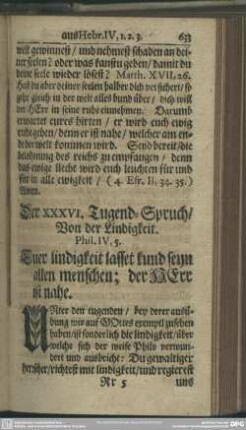 aus Hebr. IV, 1. 2. 3. 633
welt gewinnest / und nehmest schaden an dei-
ner seelen? oder was kanstu geben / damit du
deine seele wieder lösest? Matth. XVII, 26.
Hast du aber deiner seelen halber dich versichert / so
gehe gleich in der welt alles bund über / dich will
der HErr in seine ruhe einnehmen. Darumb
erwartet eures hirten / er wird euch ewig
ruhe geben / denn er ist nahe / welcher am en-
de der welt kommen wird. Seyd bereit / die
belohnung des reichs zu empfangen / denn
das ewige liecht wird euch leuchten für und
für in alle ewigkeit / (4. Esr. II, 34. 35.)
Amen.
Der XXXVI. Tugend-Spruch /
Von der Lindigkeit.
Phil. IV, 5.
Euer lindigkeit lasset kund seyn
allen menschen; der HErr
ist nahe.
UNter den tugenden / bey derer aus-
bung wir auf GOttes exempel zusehen
haben / ist sonderlich die lindigkeit / über
welche sich der weise Philo verwun-
dert und ausbricht: Du gewaltiger
herscher / richtest mit lindigkeit / und regierest
Rr 5 uns